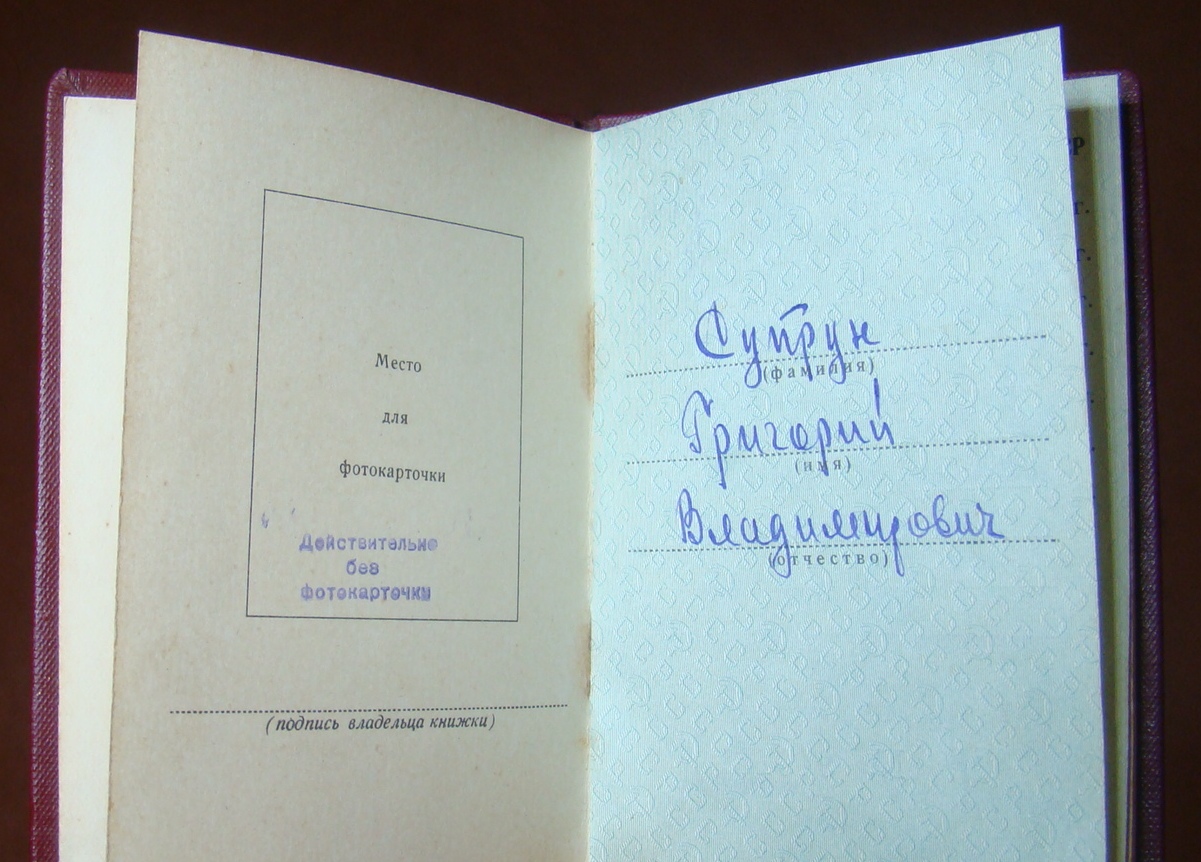 Место
для
фотокарточки
Действительно
без
фотокарточки
(подпись владельца книжки)
Супрун
(фамилия)
Григорий
(имя)
Владимирович
(отчество)
Р
г.
г.